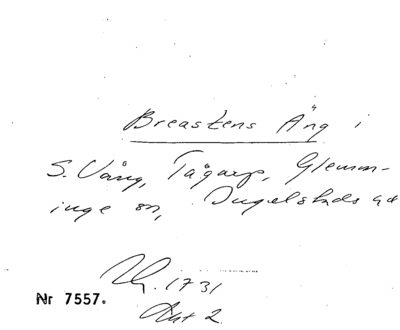 Breastens Äng i
S. Vång, Tågarp, Glemm-
inge sn, Ingelstads hd
1731
Nr 7557.
Akt 2